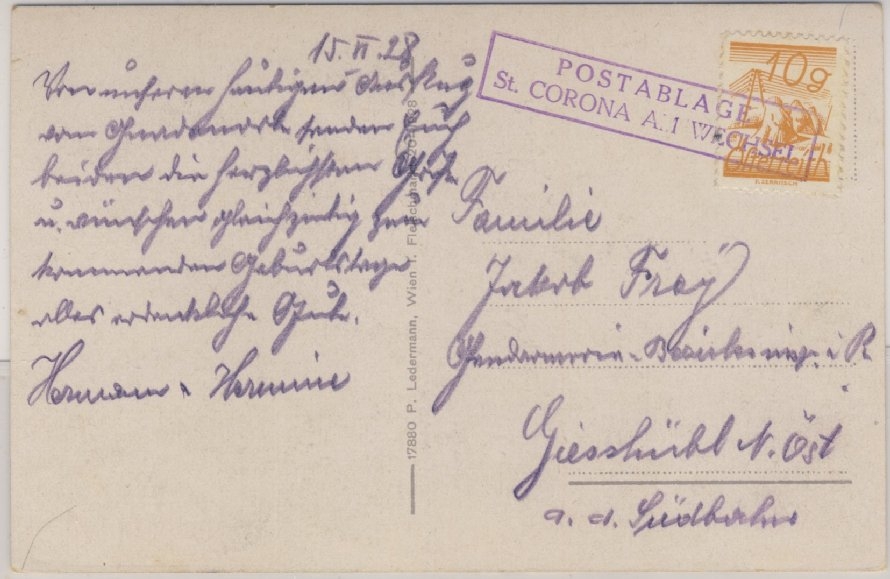 15.VI.28
Von unserem heutigen Ausflug
vom senden Euch
beiden die herzlichsten Grüße
u. wünschen gleichzeitig zum
kommenden Geburtstage
alles Gute.
Hermann u. Hermine
17880 P. Ledermann, Wien I. Fleischmarkt
POSTABLAGE
St. CORONA A. 1 WECHSEL
10g
Österreich
Familie
Jakob Frey
Gendarmerie-Bezirksinsp. i. R.
Giesshübl N. Öst
a. d. Südbahn